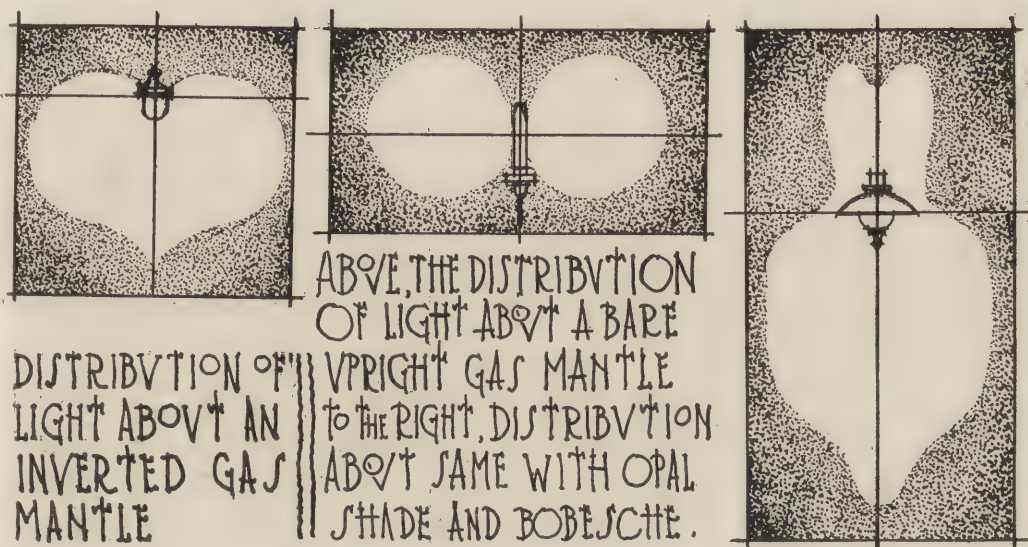 DISTRIBVTION OF
LIGHT ABOVT AN
INVERTED GAS
MANTLE
ABOVE, THE DISTRIBVTION
OF LIGHT ABOVT A BARE
VPRIGHT GAS MANTLE
TO THE RIGHT, DISTRIBVTION
ABOVT SAME WITH OPAL
SHADE AND BOBESCHE.